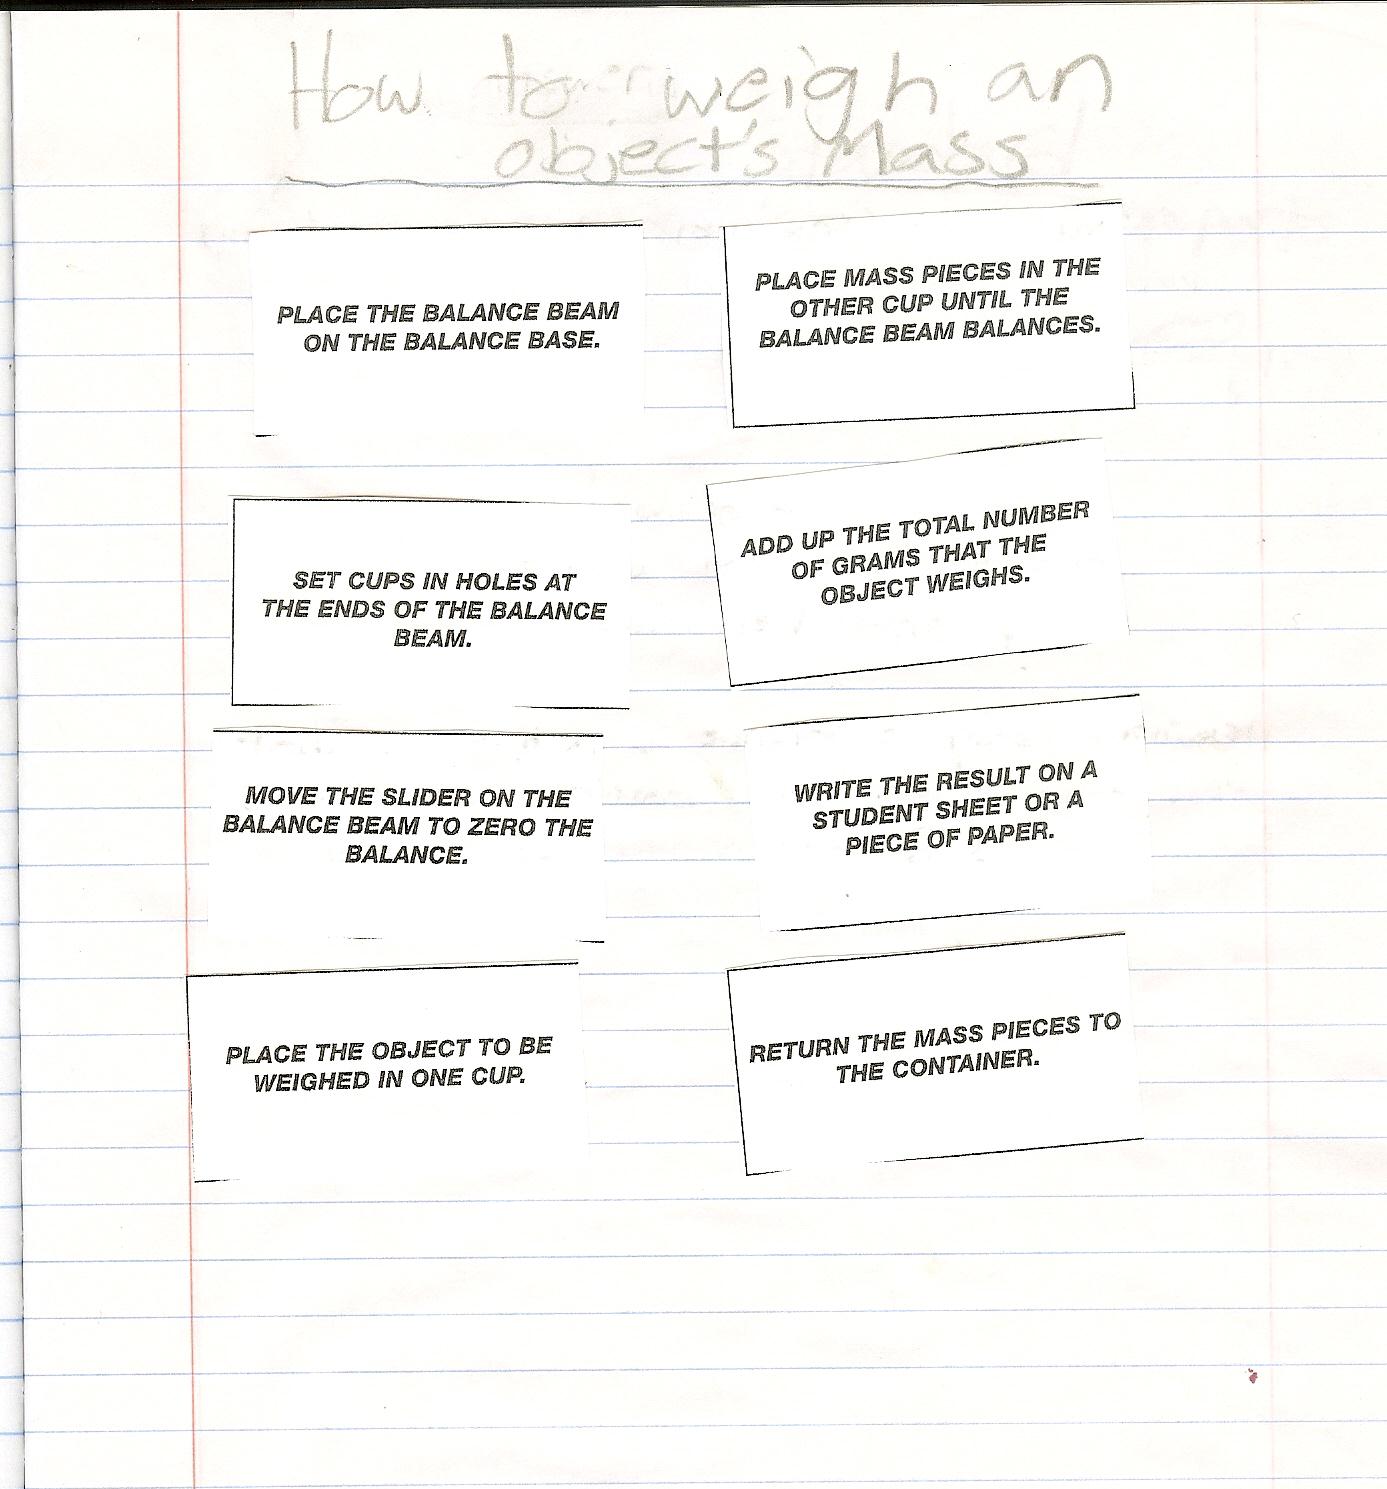 How to weigh an
object's Mass
PLACE THE BALANCE BEAM
ON THE BALANCE BASE.
SET CUPS IN HOLES AT
THE ENDS OF THE BALANCE
BEAM.
MOVE THE SLIDER ON THE
BALANCE BEAM TO ZERO THE
BALANCE.
PLACE THE OBJECT TO BE
WEIGHED IN ONE CUP.
PLACE MASS PIECES IN THE
OTHER CUP UNTIL THE
BALANCE BEAM BALANCES.
ADD UP THE TOTAL NUMBER
OF GRAMS THAT THE
OBJECT WEIGHS.
WRITE THE RESULT ON A
STUDENT SHEET OR A
PIECE OF PAPER.
RETURN THE MASS PIECES TO
THE CONTAINER.